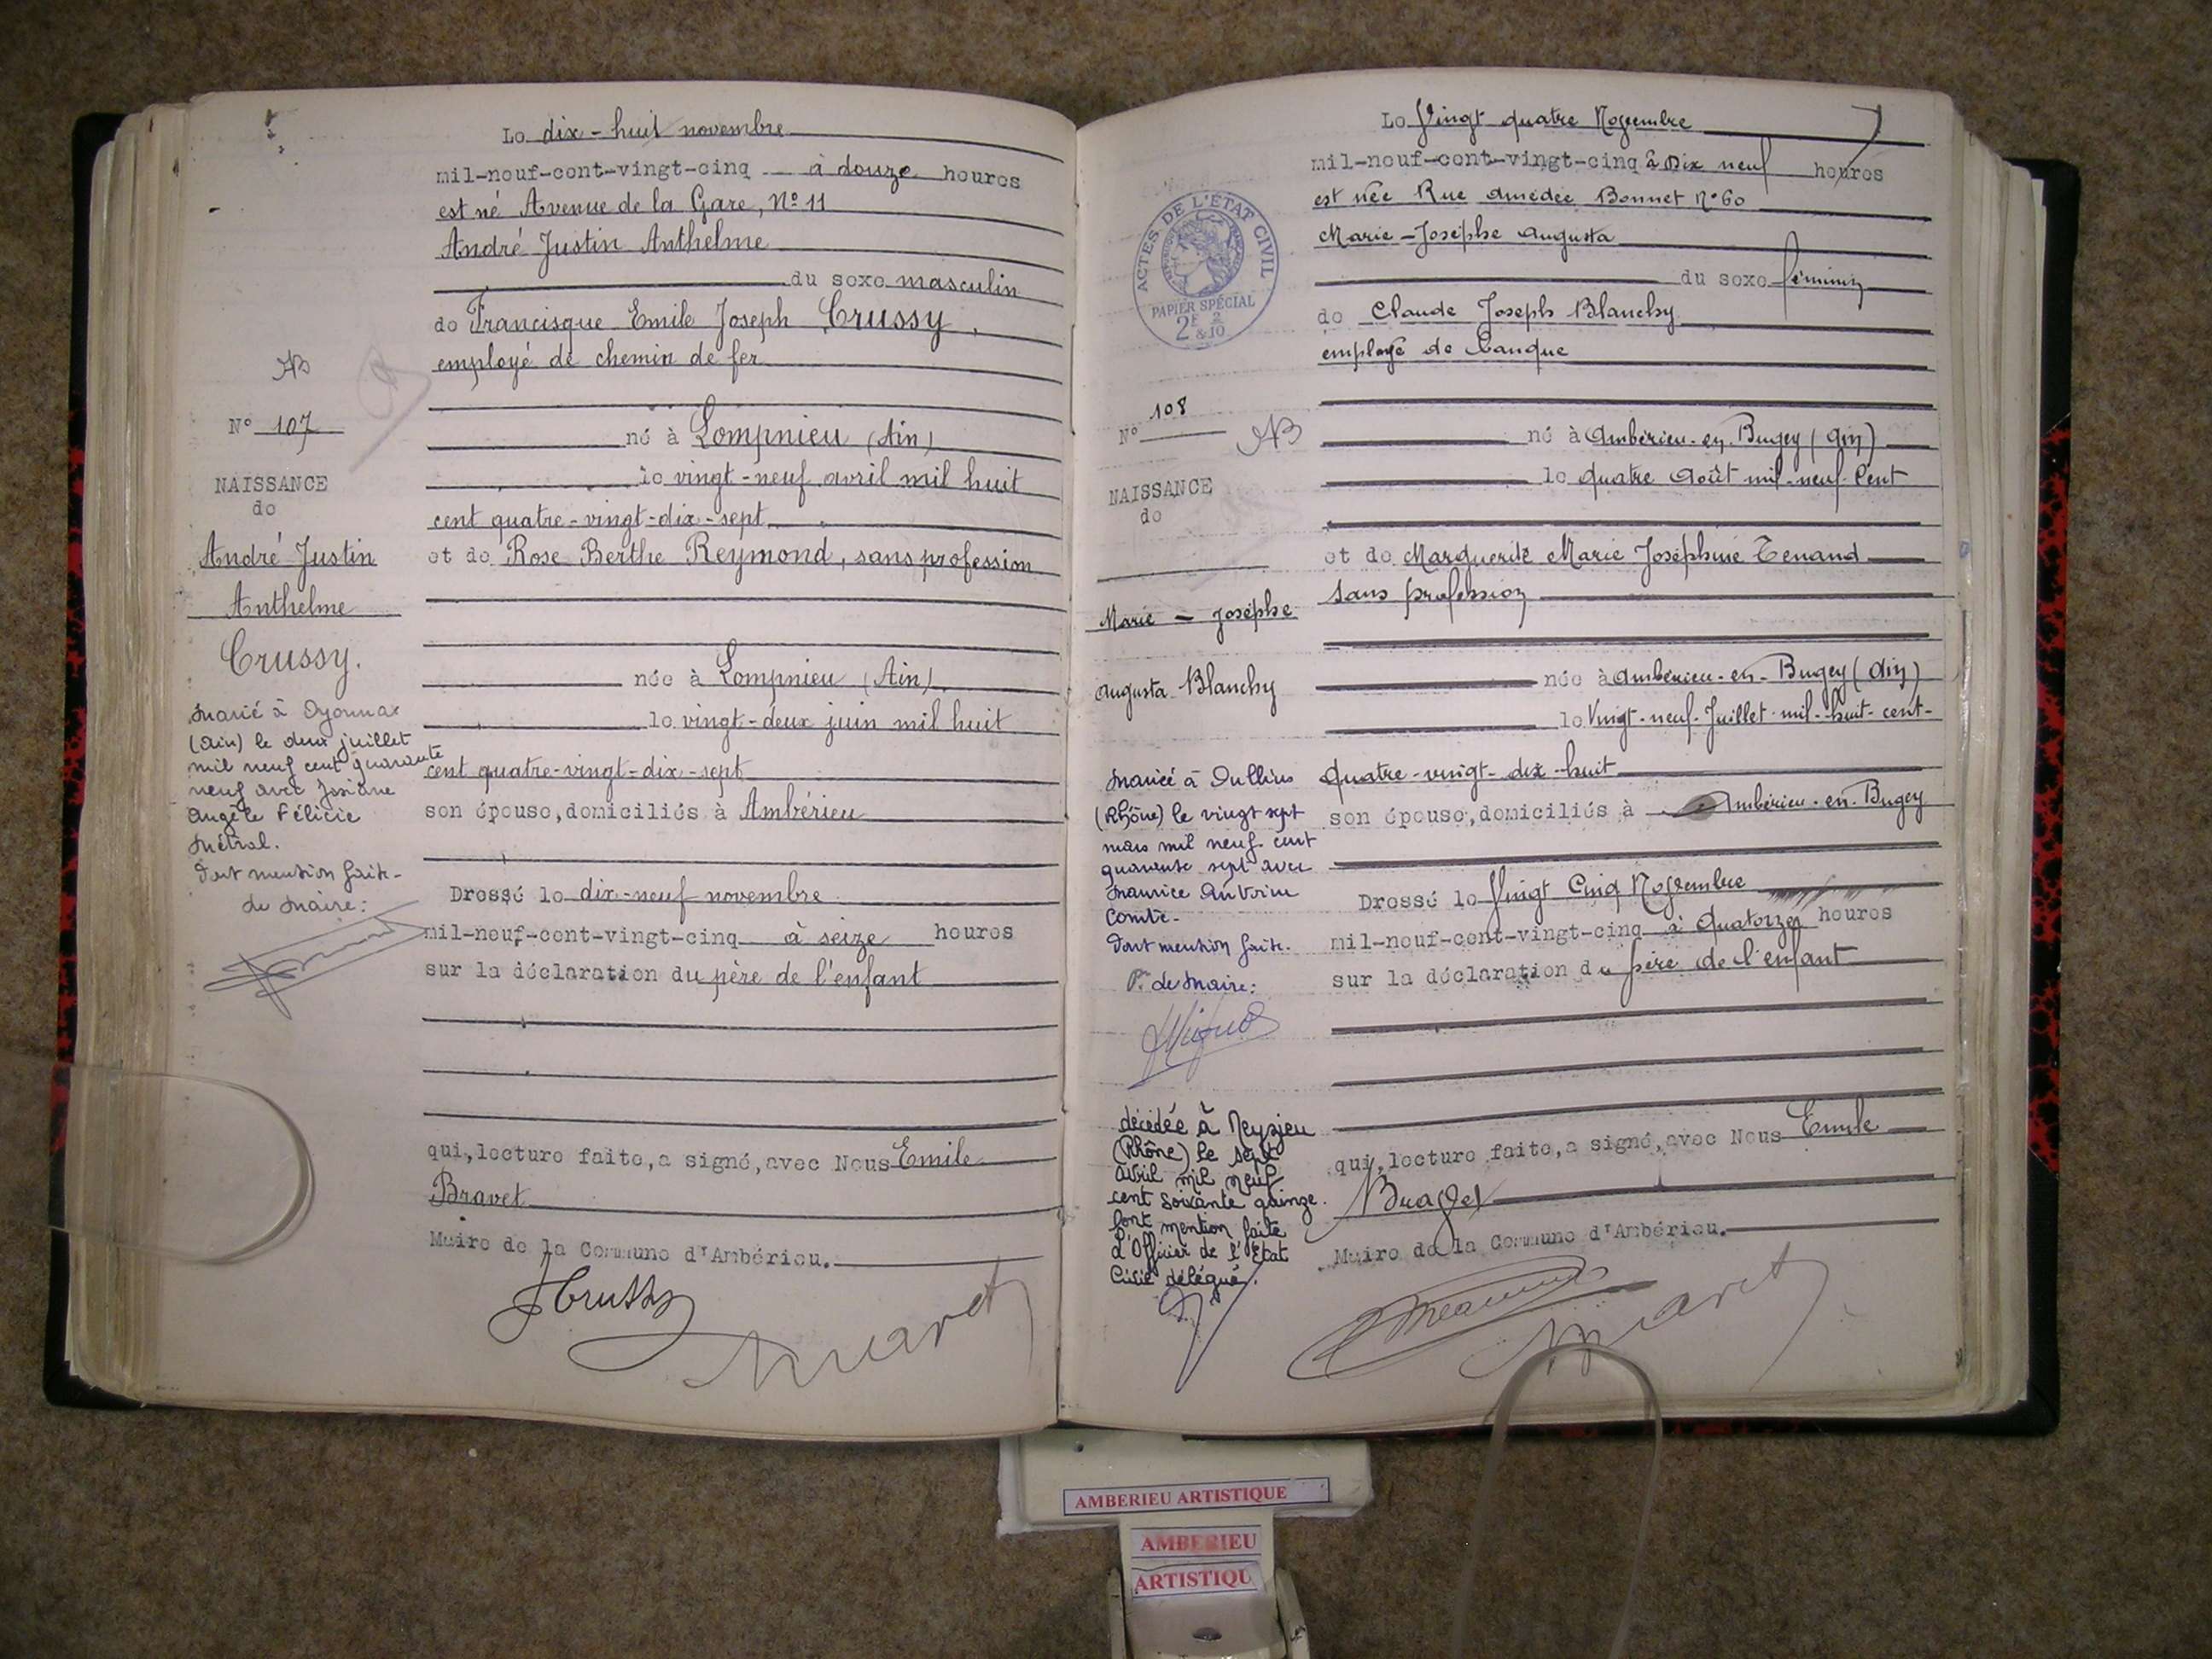 Le dix-huit novembre
mil-neuf-cent-vingt-cinq à douze heures
est né Avenue de la Gare, N° 11
André Justin Anthelme
du sexe masculin
de Francisque Emile Joseph Crussy,
employé de chemin de fer
AB
N° 107
né à Lompnieu (Ain)
le vingt-neuf avril mil huit
cent quatre-vingt-dix-sept
NAISSANCE
de
André Justin
Anthelme
Crussy.
et de Rose Berthe Reymond, sans profession
née à Lompnieu (Ain)
le vingt-deux juin mil huit
cent quatre-vingt-dix-sept
son épouse, domiciliés à Ambérieu
Marié à Oyonnax
(Ain) le deux juillet
mil neuf cent quarante
neuf avec Josiane
Angèle Félicie
Métral.
Dont mention faite-
Le Maire:
Dressé le dix-neuf novembre
mil-neuf-cent-vingt-cinq à seize heures
sur la déclaration du père de l'enfant
qui, lecture faite, a signé, avec Nous Emile
Bravet
Maire de la Commune d'Ambérieu.
Le Vingt quatre Novembre
mil-neuf-cent-vingt-cinq à Dix neuf heures
est née Rue Amédée Bonnet N° 60
Marie-Josèphe Augusta
du sexe féminin
de Claude Joseph Blanchy
employé de Banque
ACTES DE L'ETAT CIVIL
PAPIER SPÉCIAL
2F 2
&10
N° 108
AB
NAISSANCE
de
Marie - Josèphe
Augusta Blanchy
né à Ambérieu-en-Bugey (Ain)
le quatre Août mil-neuf-Cent
et de Marguerite Marie Joséphine Tenand
sans profession
née à Ambérieu-en-Bugey (Ain)
le Vingt-neuf-Juillet-mil-huit-cent-
quatre-vingt-dix-huit
son épouse, domiciliés à Ambérieu-en-Bugey
Mariée à Oullins
(Rhône) le vingt sept
mars mil neuf cent
quarante sept avec
Maurice Antoine
Comte-
Dont mention faite.
Pr Le Maire:
Dressé le Vingt Cinq Novembre
mil-neuf-cent-vingt-cinq à Quatorze heures
sur la déclaration du père de l'enfant
décédée à Meyzieu
(Rhône) le sept
avril mil neuf
cent soixante quinze.
Dont mention faite
L'Officier de l'Etat
Civil délégué.
qui, lecture faite, a signé, avec Nous Emile
Bravet
Maire de la Commune d'Ambérieu.
AMBERIEU ARTISTIQUE
AMBERIEU
ARTISTIQU